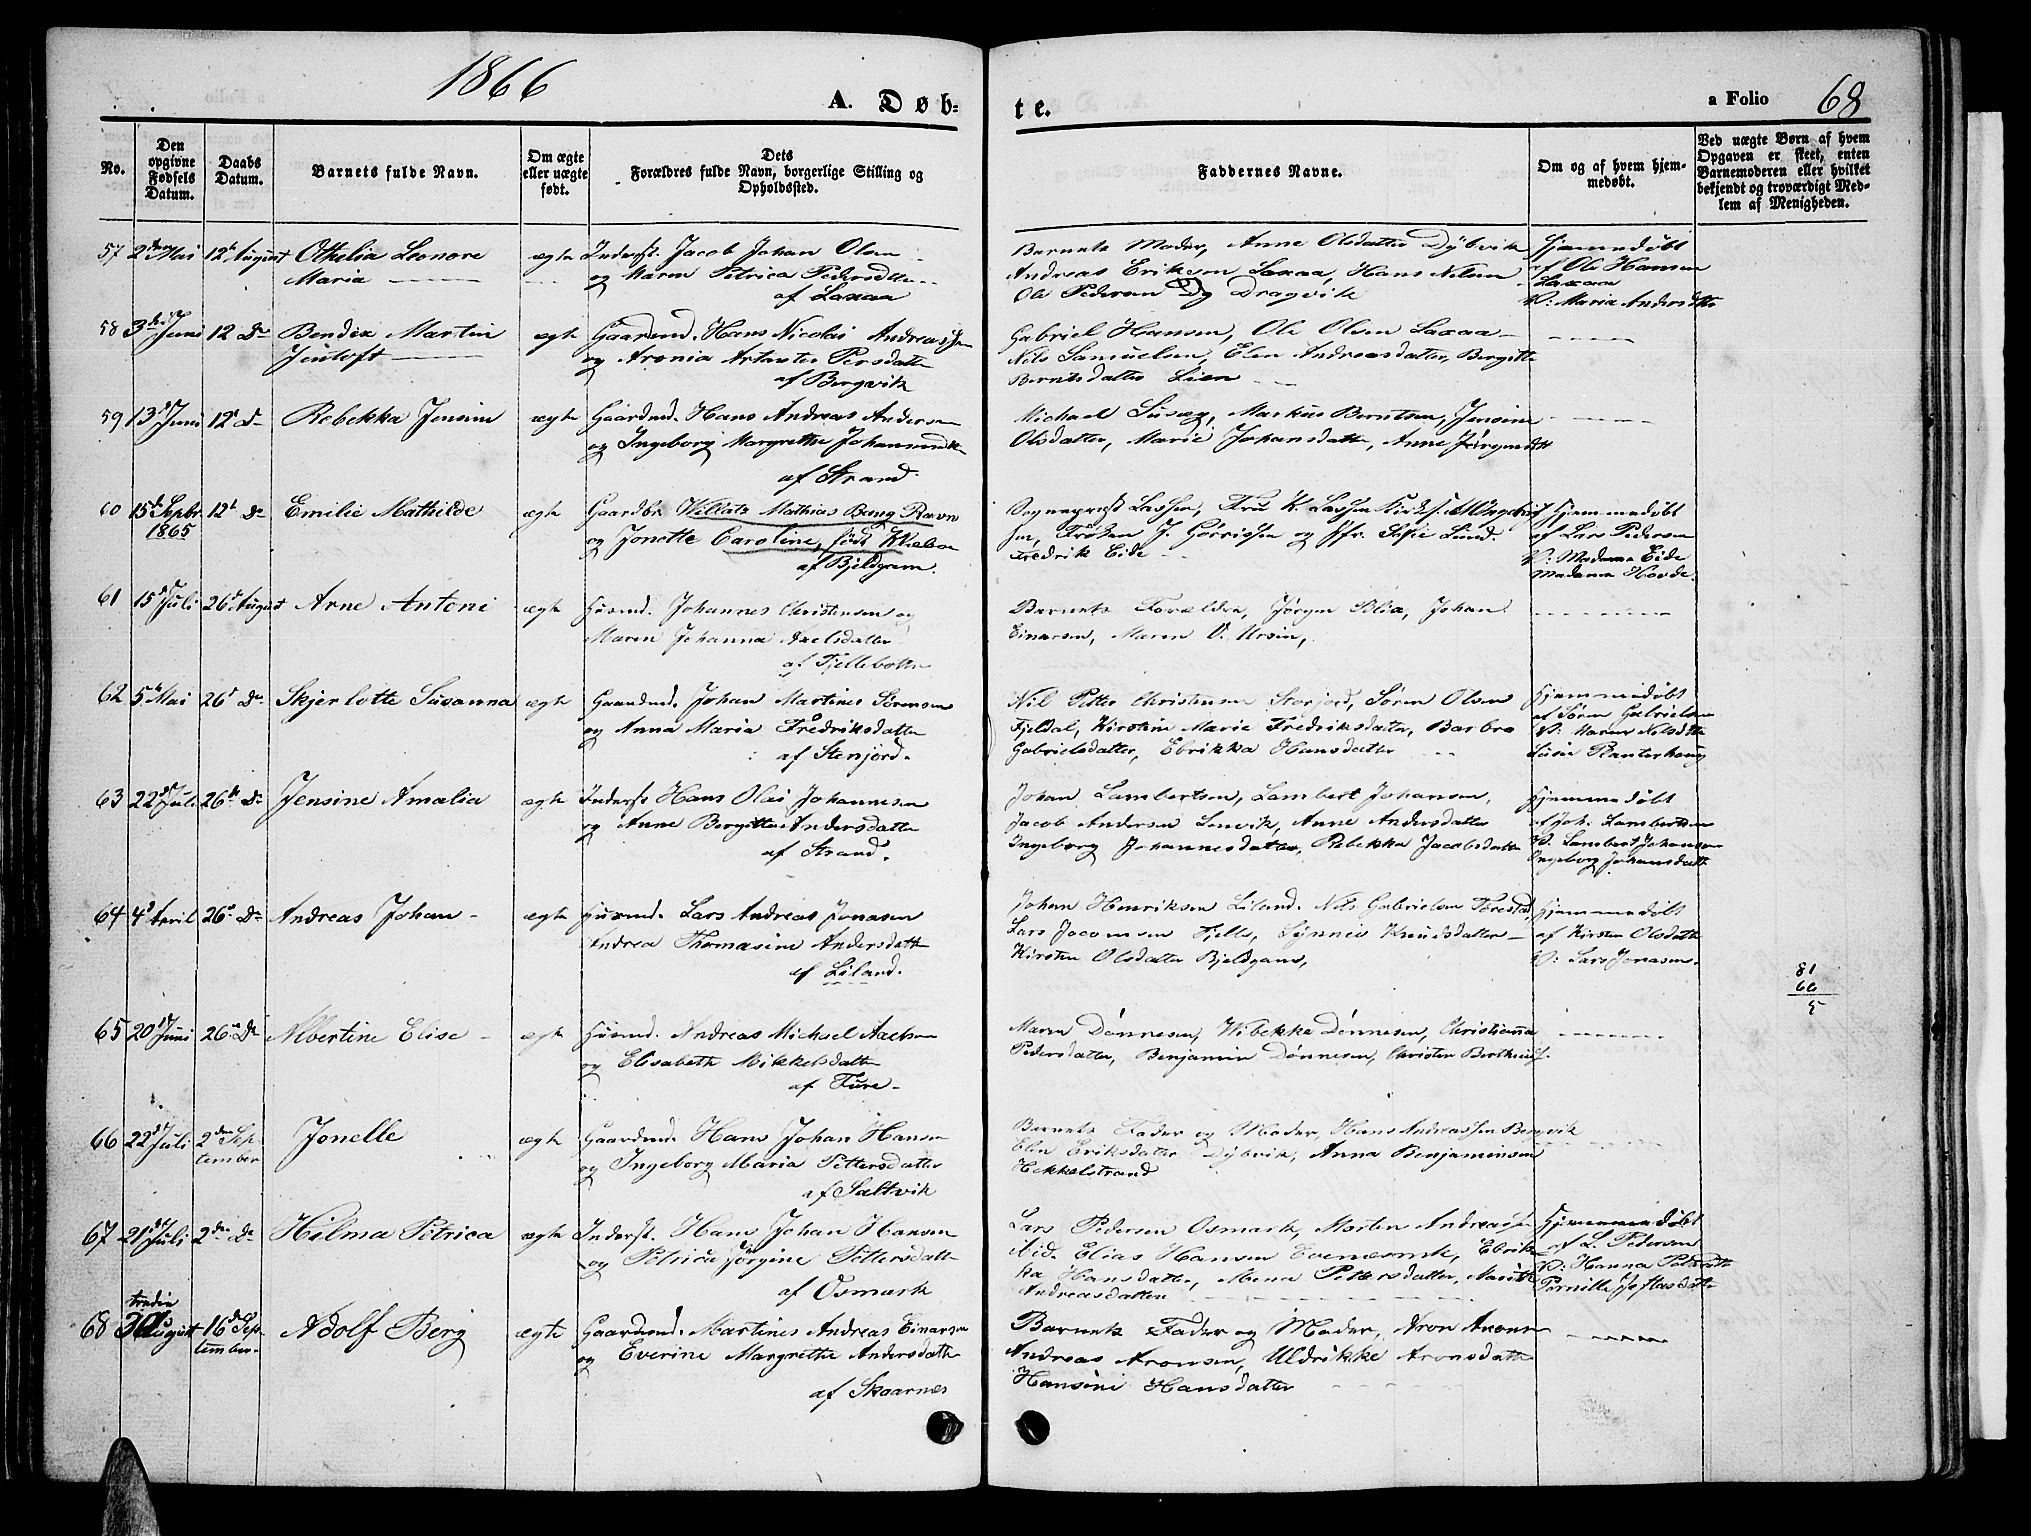 1866
A. Døb-
te.
a Folio 68
No.
Den opgivne Fødsels Datum.
Daabs Datum.
Barnets fulde Navn.
Om ægte eller uægte født.
Dets Forældres fulde Navn, borgerlige Stilling og Opholdssted.
Faddernes Navne.
Om og af hvem hjemmedøbt.
Ved uægte Børn af hvem Opgaven er skeet, enten Barnemoderen eller hvilket bekjendt og troværdigt Medlem af Menigheden.
57 2den Mai 12te August Othelia Leonore ægte Inderst. Jacob Johan Olsen
Maria og Maren Petrica Pedersdtter
af Laxaa
Barnets Moder, Anne Olsdatter Dybvik
Andreas Eriksen Laxaa, Hans Nilsen
Ole Pedersen Dragvik
Hjemmedøbt
af Ole Hansen
Laxaa
V: Maria Andersdtt
58 3die Juni 12 Do Bendix Martin ægte Gaardmd. Hans Nicolai Andreassen
Jentoft og Aronia Persdatter
af Bergvik
Gabriel Hansen, Ole Olsen Laxaa
Nils Samuelsen, Elen Andreasdatter, Bergitte
Berntsdatter Lien
59 13d Juni 12t Do Rebekka Jensine ægte Gaardmd. Hans Andreas Andersen
og Ingeborg Margrethe Johannesdtr
af Strand
Michael, Markus Berntsen, Jensine
Olsdatter, Marie Johansdatter, Anne Jørgensdtt
60 15d Septbr 12t Do Emilie Mathilde ægte Gaardbr. Willats Mathias Bang Ravn
1865 og Jonette Caroline, født
af Bjeldgam.
Sognepræst Lassen, Fru K. Lassen
Frøken J. Görrissen og Jfr. Sofie Lund
Fredrik Eide
Hjemmedøbt
af Lars Pedersen
V: Madame Eide
Madame Hovde.
61 15d Juli 26d August Arne Antoni ægte Husmd. Johannes Christensen og
Maren Johanna Axelsdatter
af Fjellebotten
Barnets Forældre, Jørgen Blix, Johan
Einarsen, Maren O. Ursin,
62 5te Mai 26d Do Skjerlotte Susanna ægte Gaardmd. Johan Martines Sørensen
og Anna Maria Fredriksdatter
af Stenjord.
Nil Petter Christensen Storjord, Søren Olsen
Fjeldal, Kirstine Marie Fredriksdatter, Barbro
Gabrielsdatter, Ebrikka Hansdatter
Hjemmedøbt
af Søren Gabrielsen
V: Maren Nilsdtter
Susie Planterhaug
63 22d Juli 26te Do Jensine Amalia ægte Inderst Hans Olai Johannesen
og Anne Bergitte Andersdatter
af Strand.
Johan Lambertsen, Lambert Johansen,
Jacob Andersen Lenvik, Anne Andersdatter
Ingeborg Johannesdatter, Rebekka Jacobsdatter
Hjemmedøbt
af Joh. Lambertsen
V. Lambert Johansen
Ingeborg Johansdatter
64 4d April 26d Do Andreas Johan ægte Husmd. Lars Andreas Jonasen
Andrea Thomasine Andersdatter
af Liland.
Johan Henriksen Liland. Nils Gabrielsen
Lars Jacomsen Fjelle, Synnev Knudsdatter
Kirsten Olsdatter Bjeldgam,
Hjemmedøbt
af Kirsten Olsdatter
V: Lars Jonasen.
81
66
5
65 20d Juni 26 Do Albertine Elise ægte Husmd. Andreas Michael Axelsen
og Elisabeth Mikkelsdatter
af Fure
Maren Dønnesen, Wibekka Dønnesen, Christianna
Pedersdatter, Benjamin Dønnesen, Christen
66 22d Juli 2den September Jonelle ægte Gaardmd. Hans Johan Hansen
og Ingeborg Maria Pettersdatter
af Saltvik
Barnets Fader og Moder, Hans Andreassen Bergvik
Elen Eriksdatter Dybvik, Anna Benjaminsen
Hekkelstrand
67 21de Juli 2den Do Hilma Petrica ægte Inderst. Hans Johan Hansen
og Petrica Jørgine Pettersdatter
af Osmark
Lars Pedersen Osmark, Morten Andreassen
ibid. Elias Hansen Evenesmk, Ebrik-
ka Hansdatter, Mena Pettersdatter, Marith
Andreasdatter
Hjemmedøbt
af L. Pedersen
V: Hanna
Pernille
68 tredie 30 August 16d September Adolf Berg ægte Gaardmd. Martines Andreas Einarsen
og Everine Margrethe Andersdatter
af Skaarnes
Barnets Fader og Moder, Aron Arons
Andreas Aronsen, Uldrikke Aronsdatter
Hansine Hansdatter